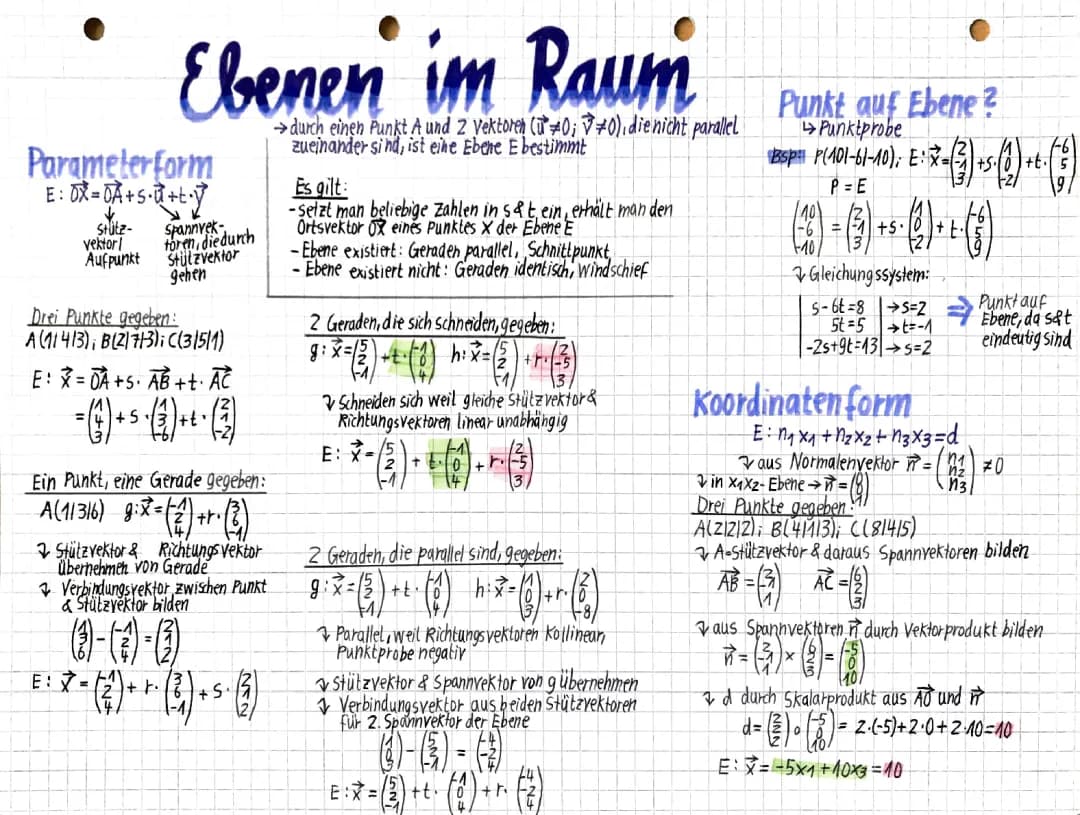 Ebenen im Raum
→ durch einen Punkt A und 2 Vektoren (u⃗ ≠0; v⃗ ≠0), die nicht parallel
zueinander sind, ist eine Ebene E bestimmt
Parameterform
E: OX⃗ = OA⃗ + s·u⃗ + t·v⃗
Stütz-
vektor/
Aufpunkt
Spannvek-
toren, die durch
Stützvektor
gehen
Es gilt:
- setzt man beliebige Zahlen in s & t ein, erhält man den
Ortsvektor OX⃗ eines Punktes X der Ebene E
- Ebene existiert: Geraden parallel, Schnittpunkt
- Ebene existiert nicht: Geraden identisch, windschief
Drei Punkte gegeben:
A(1|4|3); B(2|7|-3); C(3|5|1)
E: x⃗ = OA⃗ + s· AB⃗ + t· AC⃗
= (1 4 3) + s · (1 3 -6) + t · (2 1 -2)
Ein Punkt, eine Gerade gegeben:
A(1|3|6) g: x⃗ = (-1 2 4) + r· (3 6 -1)
↴ Stützvektor & Richtungsvektor
übernehmen von Gerade
↴ Verbindungsvektor zwischen Punkt
& Stützvektor bilden
(1 3 6) - (-1 2 4) = (2 1 2)
E: x⃗ = (-1 2 4) + r· (3 6 -1) + s· (2 1 2)
2 Geraden, die sich schneiden, gegeben:
g: x⃗ = (5 2 -1) + t· (-1 0 4) h: x⃗ = (5 2 -1) + r· (2 -5 3)
↴ Schneiden sich weil gleiche Stützvektor &
Richtungsvektoren linear unabhängig
E: x⃗ = (5 2 -1) + t· (-1 0 4) + r· (2 -5 3)
2 Geraden, die parallel sind, gegeben:
g: x⃗ = (5 2 -1) + t· (-1 0 4) h: x⃗ = (1 0 3) + r· (2 0 -8)
↴ Parallel, weil Richtungsvektoren kollinear,
Punktprobe negativ
↴ Stützvektor & Spannvektor von g übernehmen
↴ Verbindungsvektor aus beiden Stützvektoren
für 2. Spannvektor der Ebene
(1 0 3) - (5 2 -1) = (-4 -2 4)
E: x⃗ = (5 2 -1) + t· (-1 0 4) + r· (-4 -2 4)
Punkt auf Ebene?
↳ Punktprobe
Bsp: P(10|-6|-10); E: x⃗ = (2 -1 3) + s· (1 0 -2) + t· (-6 5 9)
P = E
(10 -6 -10) = (2 -1 3) + s· (1 0 -2) + t· (-6 5 9)
↴ Gleichungssystem:
s - 6t = 8 → s=2
5t = 5 → t=-1
-2s+9t=13 → s=2
⇒ Punkt auf
Ebene, da s&t
eindeutig sind
Koordinatenform
E: n₁x₁ + n₂x₂ + n₃x₃ = d
↴ aus Normalenvektor n⃗ = (n₁ n₂ n₃) ≠ 0
↴ in x₁x₂-Ebene → n⃗ = (0 0 1)
Drei Punkte gegeben:
A(2|2|2); B(4|1|3); C(8|4|5)
↴ A=Stützvektor & daraus Spannvektoren bilden
AB⃗ = (2 -1 1) AC⃗ = (6 2 3)
↴ aus Spannvektoren n⃗ durch Vektorprodukt bilden
n⃗ = (2 -1 1) × (6 2 3) = (-5 0 10)
↴ d durch Skalarprodukt aus AO⃗ und n⃗
d = (2 2 2) ∘ (-5 0 10) = 2·(-5)+2·0+2·10=10
E: x⃗ = -5x₁ + 10x₃ = 10